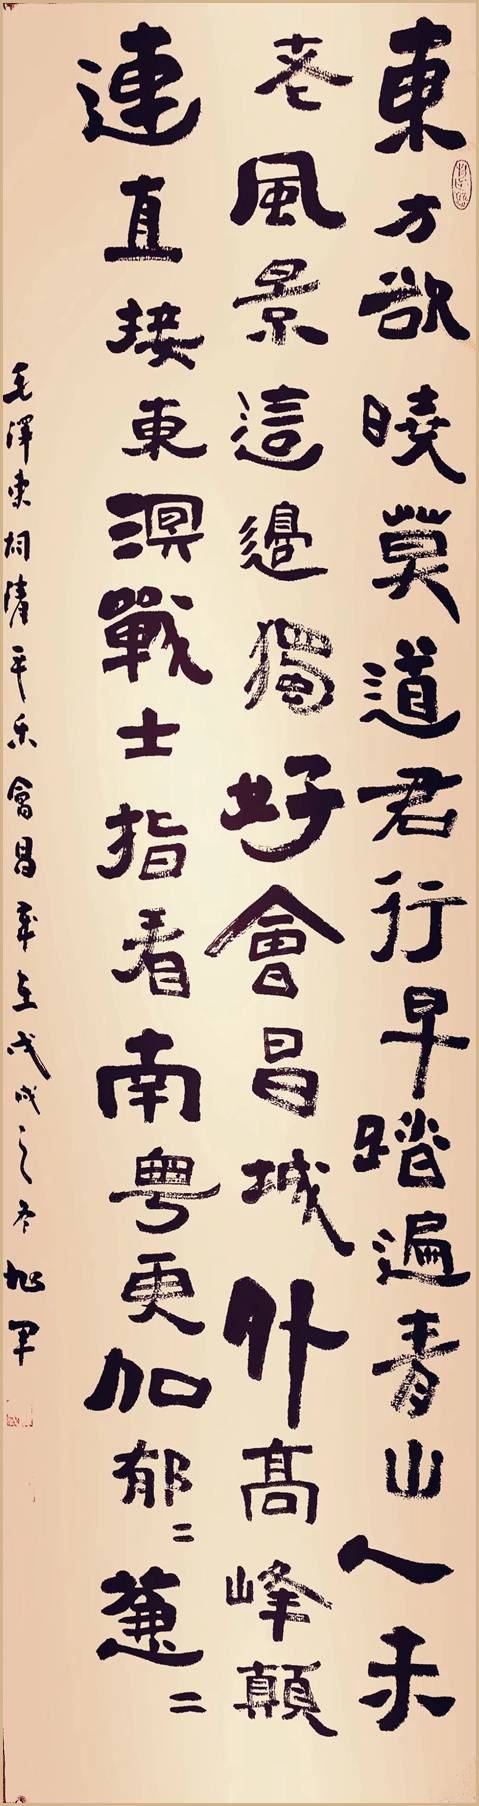 東方欲曉莫道君行早踏遍青山人未
老風景這邊獨好會昌城外高峰顛
連直接東溟戰士指看南粵更加郁〻蔥〻
毛澤東詞清平樂會昌歲在戊戌之冬旭